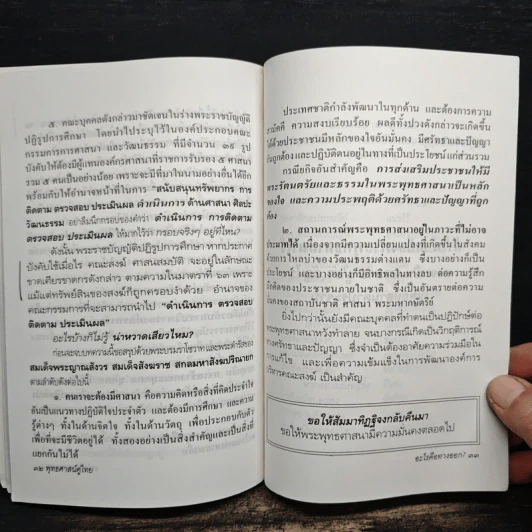 ๕. คณะบุคคลดังกล่าวมาชัดเจนในร่างพระราชบัญญัติ
ปฏิรูปการศึกษา โดยนำไประบุไว้ในองค์ประกอบคณะ
กรรมการการศาสนา และวัฒนธรรม ที่มีจำนวน ๓๙ รูป
บังคับให้ต้องมีผู้แทนองค์กรศาสนาที่ราชการรับรอง ๕ ศาสนา
รวม ๕ คนเป็นอย่างน้อย เพราะจะมีที่มาในนามอย่างอื่นได้อีก
พร้อมกับให้อำนาจหน้าที่ในการ "สนับสนุนทรัพยากร การ
ติดตาม ตรวจสอบ ประเมินผล ดำเนินการ ด้านศาสนา ศิลปะ
วัฒนธรรม อย่าลืมนึกกรอบของคำว่า ดำเนินการ การติดตาม
ตรวจสอบ ประเมินผล ให้มากไว้ว่า กรอบจริงๆ อยู่ที่ไหน?
ดังนั้น พระราชบัญญัติปฏิรูปการศึกษา หากประกาศ
บังคับใช้เมื่อไร คณะสงฆ์ ศาสนสมบัติ จะอยู่ในลักษณะ
ขาดเคียขาดการดังกล่าว ตามความในมาตราที่ ๖๓ เพราะ
แม้แต่ทรัพย์สินของสงฆ์ก็ถูกครอบงำด้วย อำนาจของ
คณะกรรมการที่จะสามารถนำไป "ดำเนินการ ตรวจสอบ
ติดตาม ประเมินผล"
อะไรบ้างก็ไม่รู้ น่าหวาดเสียวไหม?
ก่อนจะจบบทความนี้ขอสรุปด้วยพระบรมราโชวาท และพระดำรัสของ
สมเด็จพระญาณสังวร สมเด็จสังฆราช สกลมหาสังฆปริณายก
ตามลำดับดังต่อไปนี้
๑. คนเราจะต้องมีศาสนา คือความคิดหรือสิ่งที่คิดประจำใจ
อันเป็นแนวทางปฏิบัติประจำตัว และต้องมีการศึกษา และความ
รู้ต่างๆ ทั้งในด้านจิตใจ ทั้งในด้านวัตถุ เพื่อประกอบกับตัว
เพื่อที่จะมีชีวิตอยู่ได้ ทั้งสองอย่างเป็นสิ่งสำคัญและเป็นสิ่งที่
แยกกันไม่ได้
๓๒ พุทธศาสน์คู่ไทย
ประเทศชาติกำลังพัฒนาในทุกด้าน และต้องการความ
สามัคคี ความสงบเรียบร้อย ผลดีที่ทั้งปวงดังกล่าวจะเกิดขึ้น
ได้ด้วยประชาชนมีหลักของใจอันมั่นคง มีศรัทธาและปัญญา
อันถูกต้อง และปฏิบัติตนอยู่ในทางที่เป็นประโยชน์ แก่ส่วนรวม
กรณียกิจอันสำคัญคือ การส่งเสริมประชาชนให้มี
พระรัตนตรัยและธรรมในพระพุทธศาสนาเป็นหลัก
ของใจ และความประพฤติด้วยศรัทธาและปัญญาที่ถูก
ต้อง
๒. สถานการณ์พระพุทธศาสนาอยู่ในภาวะที่ไม่อาจ
ประมาทได้ เนื่องจากมีความเปลี่ยนแปลงที่เกิดขึ้นในสังคม
ด้วยการไหลบ่าของวัฒนธรรมต่างแดน ซึ่งบางอย่างก็เป็น
ประโยชน์ และบางอย่างก็มีอิทธิพลในทางลบ ต่อความรู้สึก
นึกคิดของประชาชนภายในชาติ ซึ่งเป็นอันตรายต่อความ
มั่นคงของสถาบันชาติ ศาสนา พระมหากษัตริย์
ยิ่งไปกว่านั้นยังมีคณะบุคคลที่ทำตนเป็นปฏิปักษ์ต่อ
พระพุทธศาสนาหวังทำลาย จนบางกรณีเกิดเป็นวิกฤติการณ์
ทางศรัทธาและปัญญา ซึ่งจำเป็นต้องอาศัยความร่วมมือใน
การแก้ไข และเพื่อความเข้มแข็งในการพัฒนาองค์การ
บริหารคณะสงฆ์ เป็นสำคัญ
ขอให้สัมมาทิฏฐิจงกลับคืนมา
ขอให้พระพุทธศาสนามีความมั่นคงตลอดไป
อะไรคือทางออก? ๓๓